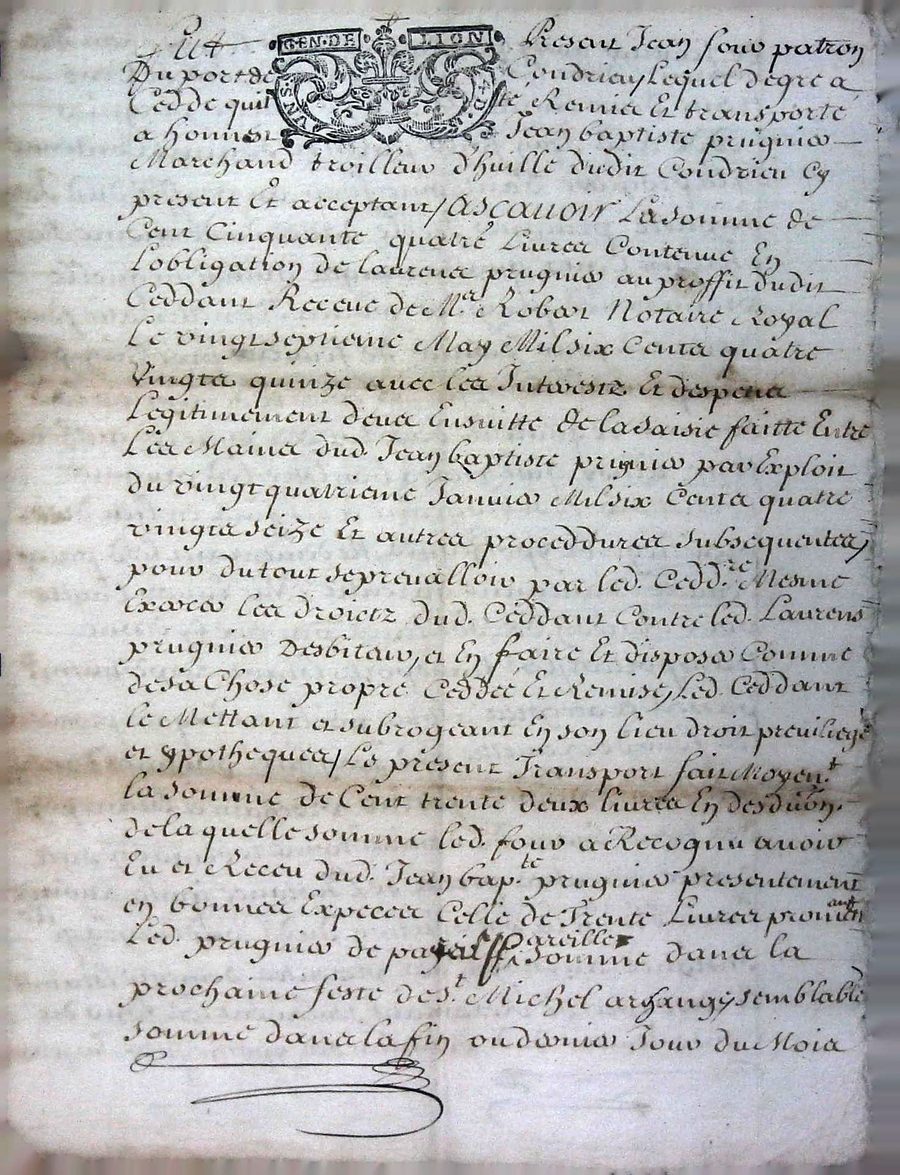 GEN·DE LION
Fut Present Jean four patron
Du port de Condrieu, Lequel de gré a
Cedde quitté Remis Et transporté
a honnest Jean baptiste prugnier
Marchand troilleur d'huille dudit Condrieu Cy
present Et acceptant, Ascavoir La somme de
Cent Cinquante quatre Livres Contenue En
L'obligation de Laurens prugnier au proffit dudit
Ceddant Receue de Me. Robert Notaire Royal
Le vingt septieme May Mil six Cents quatre
vingts quinze avec les Interests Et despens
Legitimement deues Ensuitte de la saisie faitte Entre
Les Mains dud. Jean baptiste prugnier par Exploit
du vingt quatrieme Janvier Mil six Cents quatre
vingts seize Et autres proceddures subsequentes,
pour du tout se prevalloir par led. Cedd.re Mesme
Exercer les droictz dud. Ceddant Contre led. Laurens
prugnier Desbiteur, et En faire Et disposer Comme
de sa Chose propre Ceddée Et Remise, Led. Ceddant
le Mettant et subrogeant En son lieu droit previliege
et ypotheques, Le present Transport fait Moyen.t
la somme de Cent trente deux livres En desduon.
de la quelle somme led. four a Recognu avoir
Eu et Receu dud. Jean bap.te prugnier presentement
en bonnes Expeces Celle de Trente Livres promettant
Led. prugnier de payer pareille somme dans la
prochaine feste de St. Michel archange, semblable
somme dans la fin ou dernier Jour du Mois